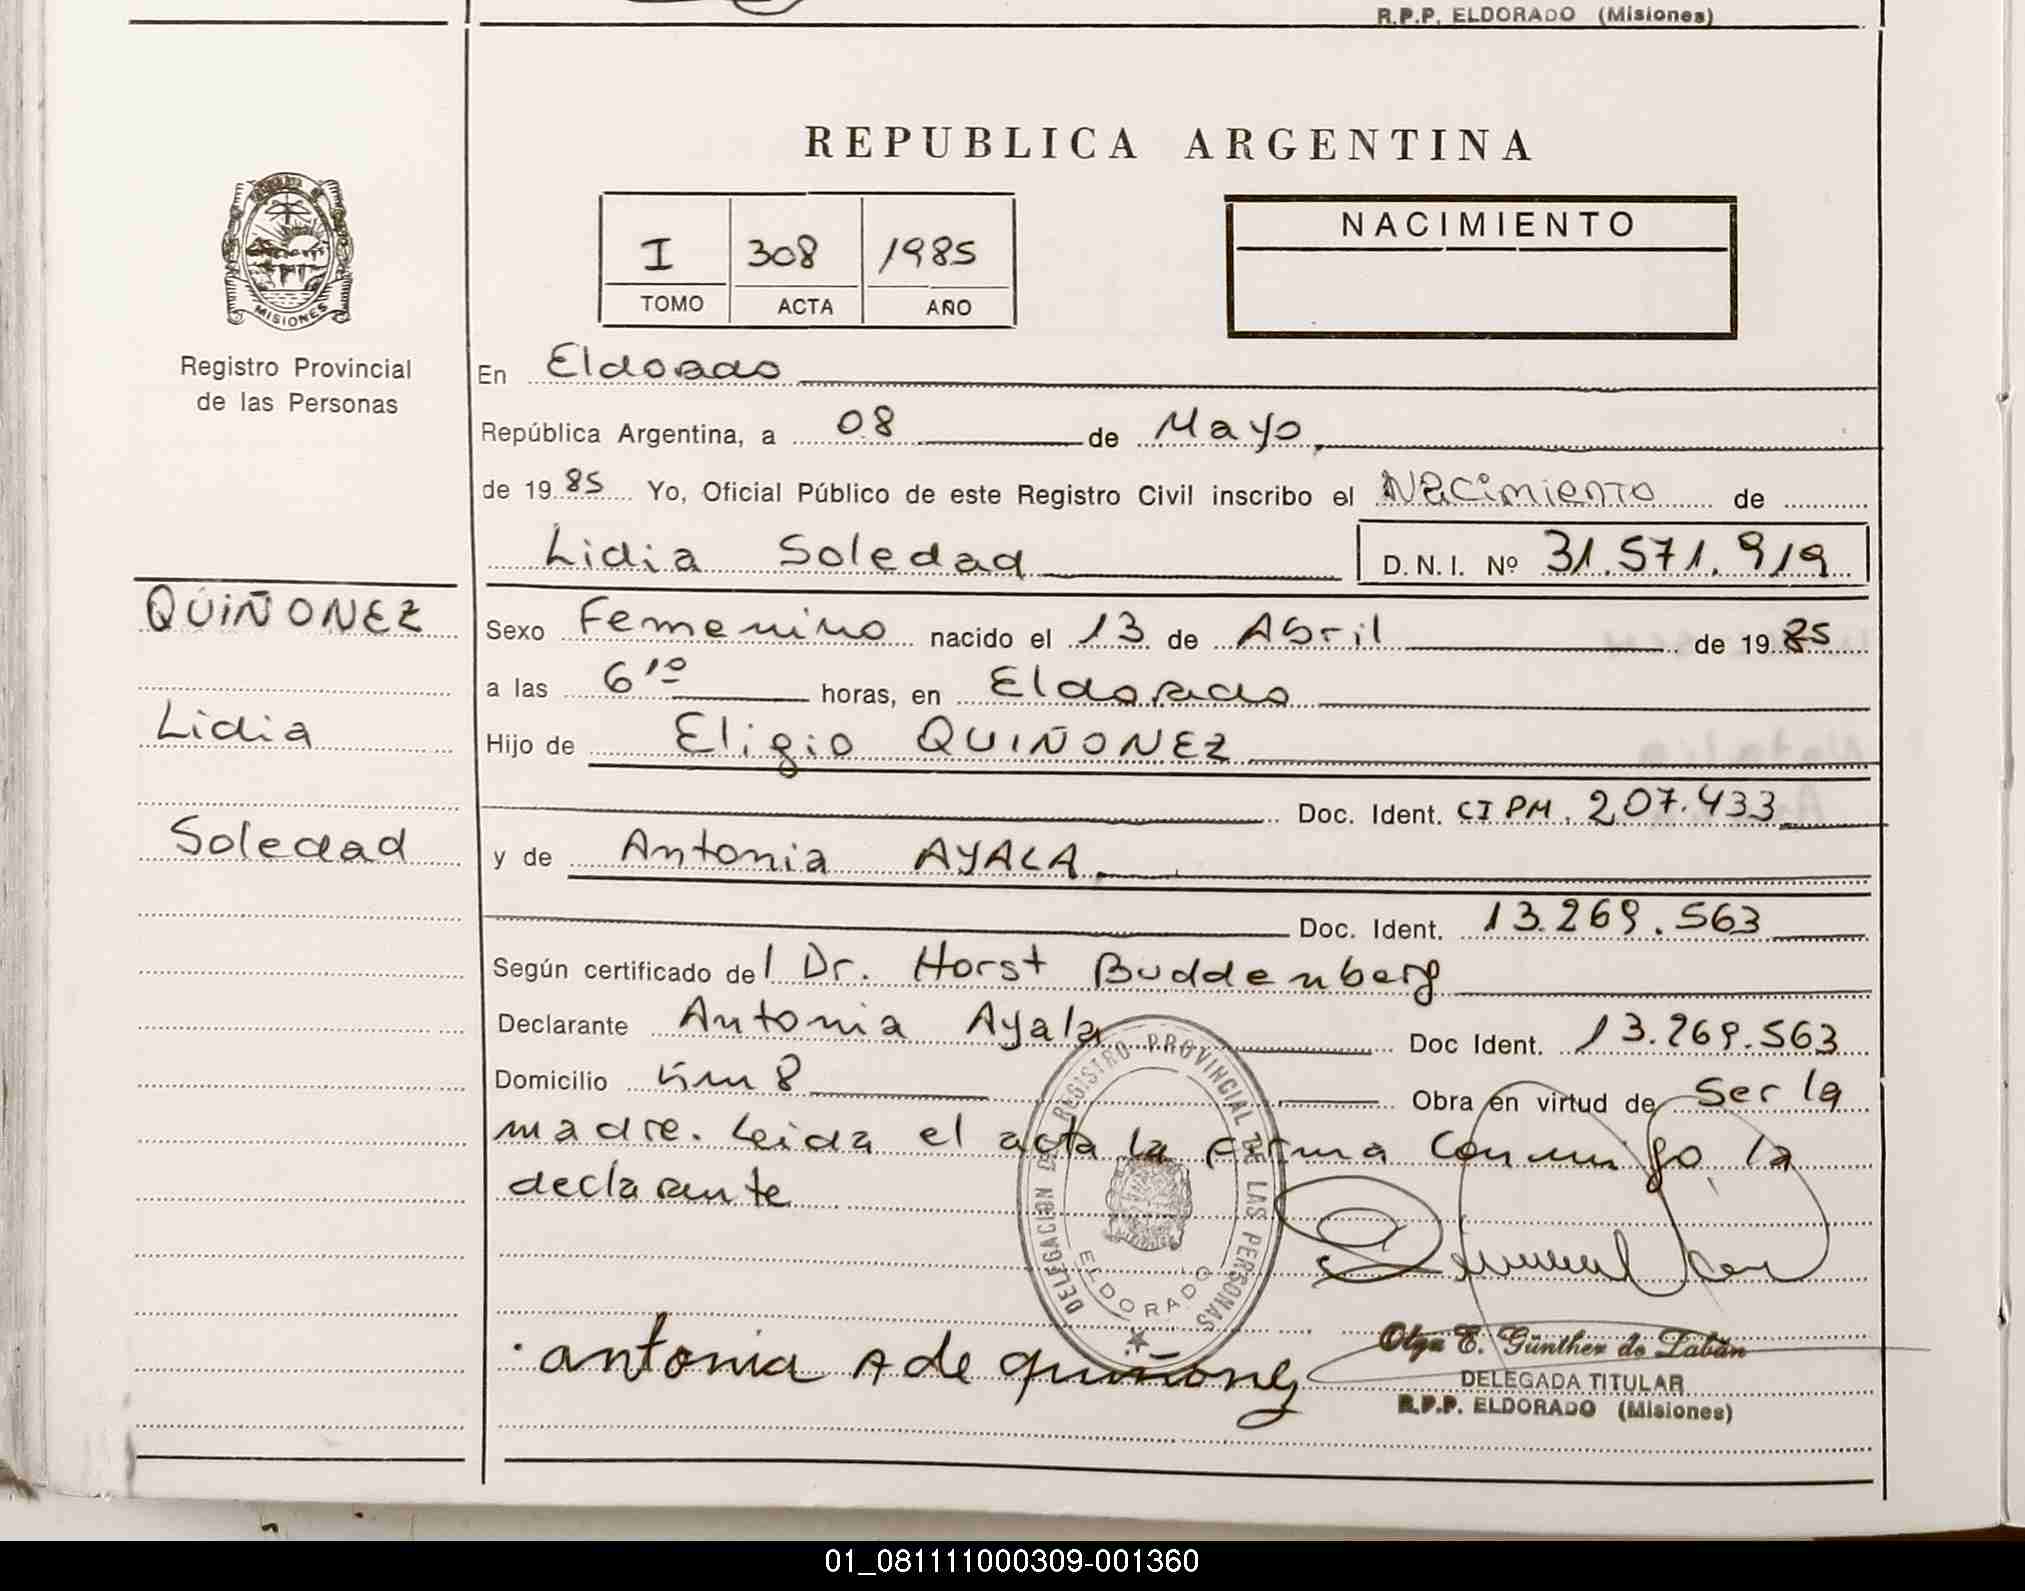 R.P.P. ELDORADO (Misiones)
REPUBLICA ARGENTINA
I 308 1985
TOMO ACTA AÑO
NACIMIENTO
MISIONES
Registro Provincial
de las Personas
En Eldorado
República Argentina, a 08 de Mayo
de 1985 Yo, Oficial Público de este Registro Civil inscribo el Nacimiento de
Lidia Soledad D.N.I. Nº 31.571.919
QUIÑONEZ
Lidia
Soledad
Sexo Femenino nacido el 13 de Abril de 1985
a las 6¹º horas, en Eldorado
Hijo de Eligio QUIÑONEZ
Doc. Ident. CI PM. 207.433
y de Antonia AYALA
Doc. Ident. 13.269.563
Según certificado del Dr. Horst Buddenberg
Declarante Antonia Ayala Doc Ident. 13.269.563
Domicilio Km 8 Obra en virtud de ser la
madre. Leida el acta la firma conmigo la
declarante
DELEGACION DE REGISTRO PROVINCIAL DE LAS PERSONAS
ELDORADO
antonia A de quiñonez
Olga E. Günther de Labán
DELEGADA TITULAR
R.P.P. ELDORADO (Misiones)
01_081111000309-001360